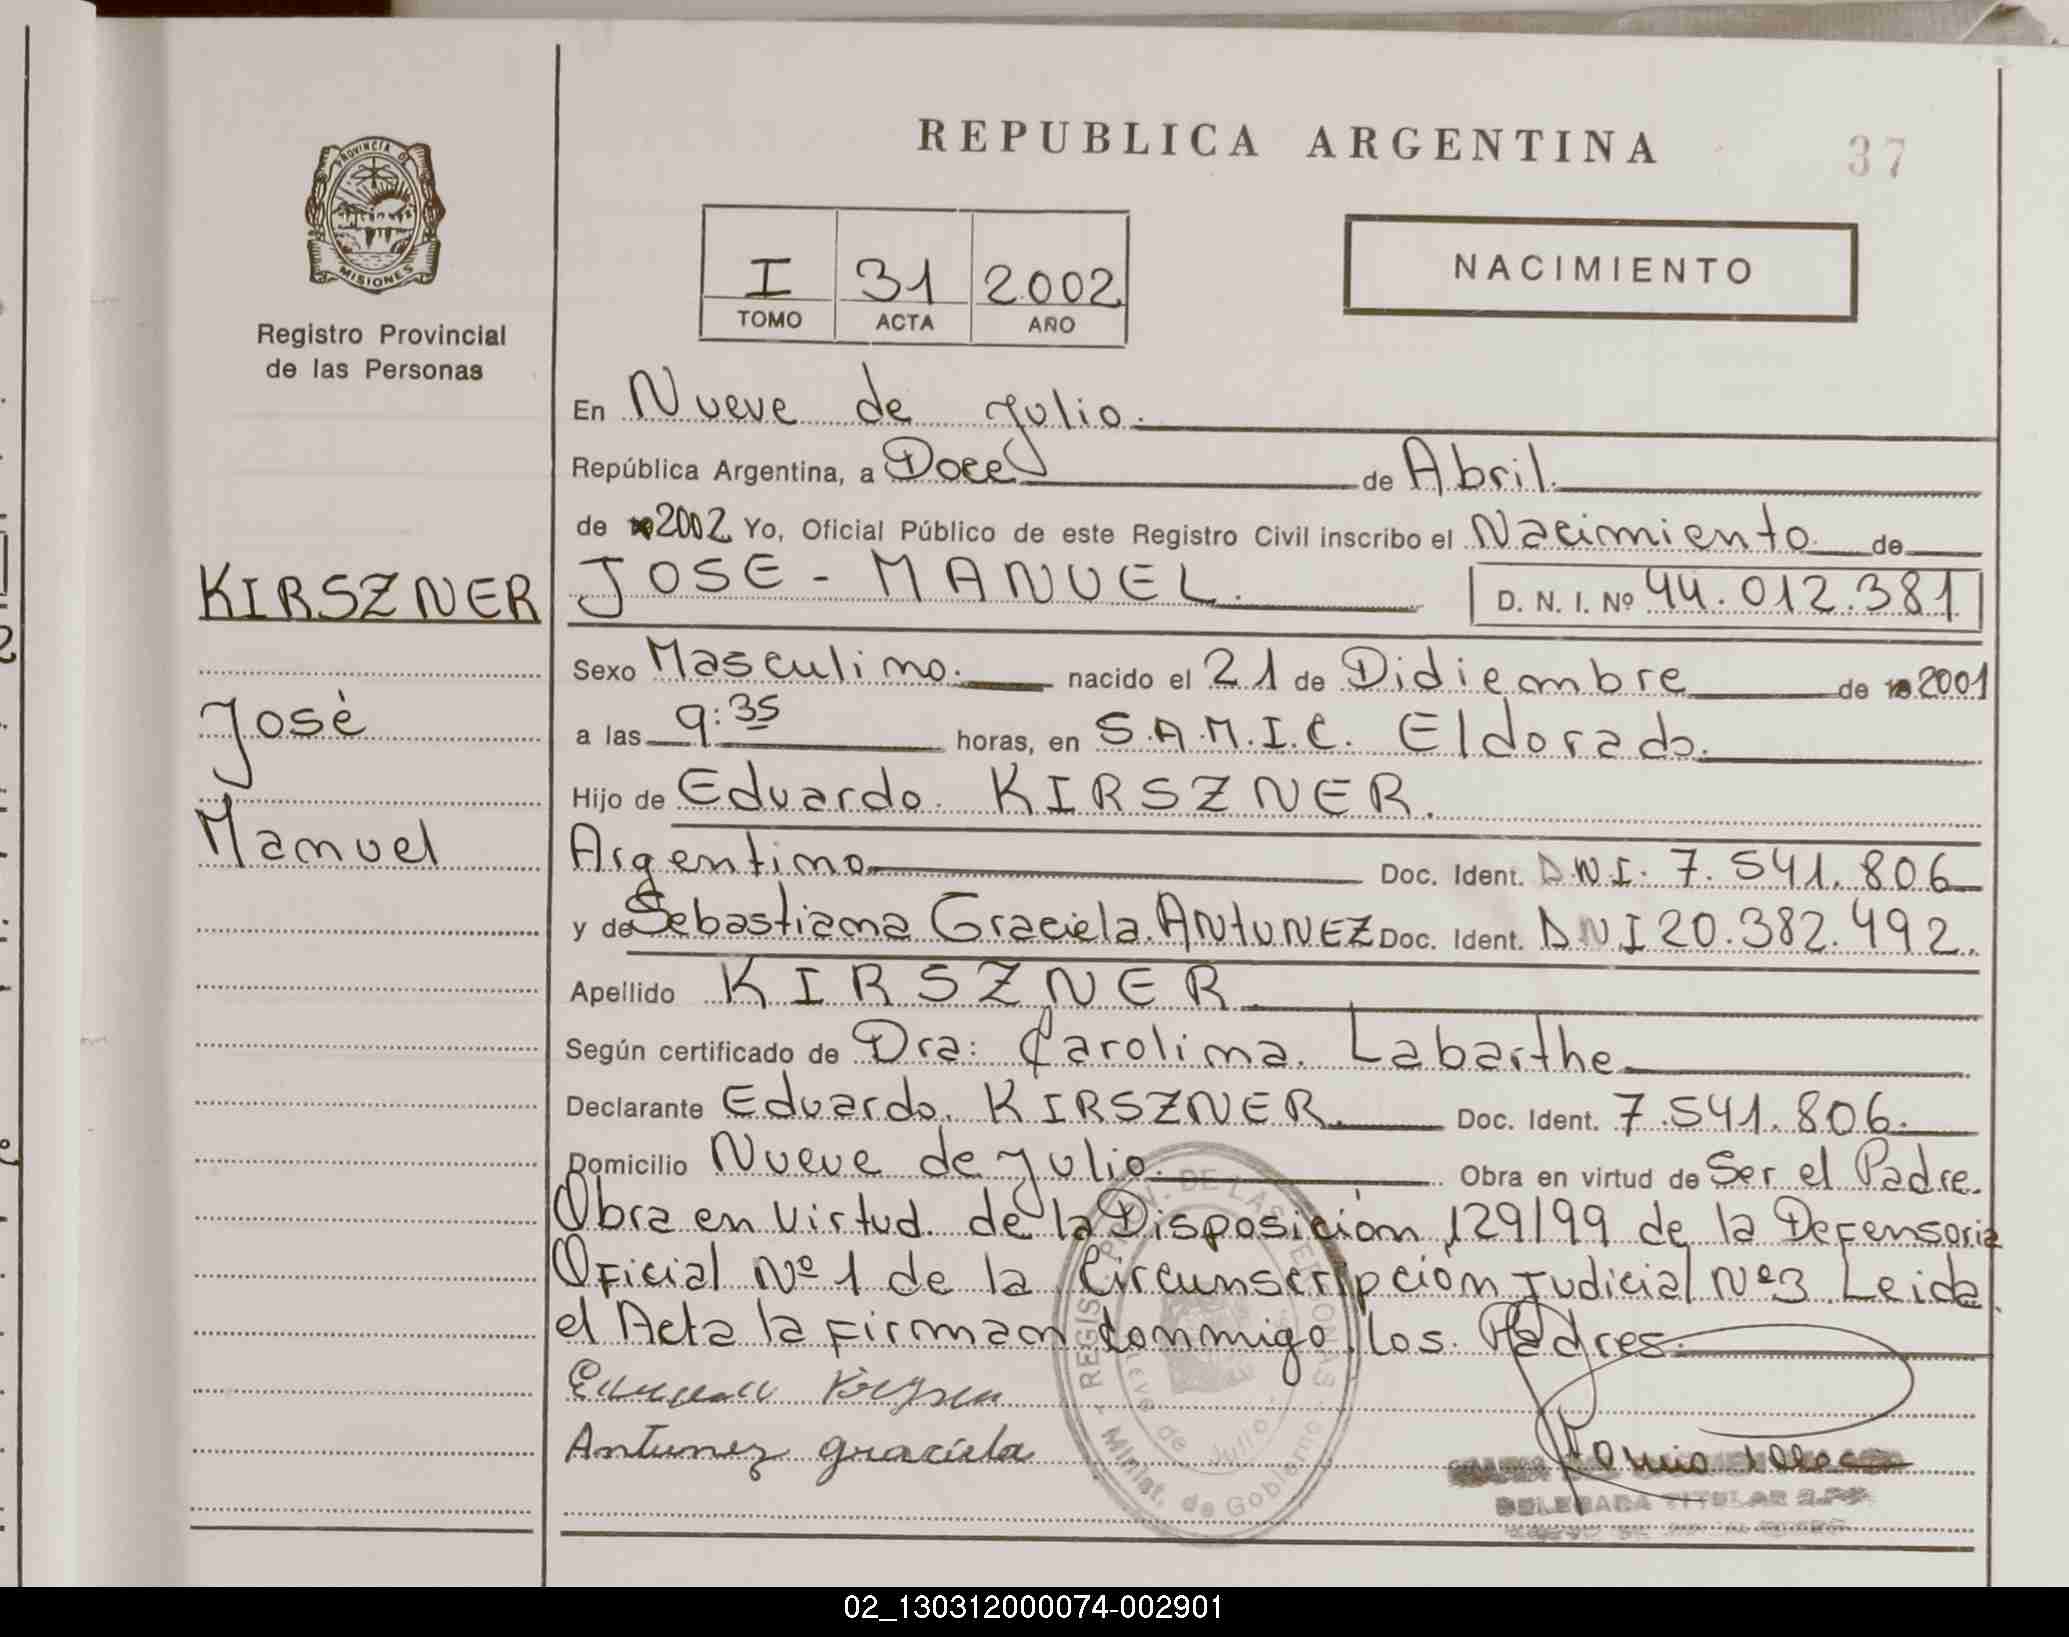 REPUBLICA ARGENTINA
37
PROVINCIA DE
MISIONES
Registro Provincial
de las Personas
I 31 2002
TOMO ACTA AÑO
NACIMIENTO
En Nueve de Julio.
República Argentina, a Doce de Abril.
de 2002 Yo, Oficial Público de este Registro Civil inscribo el Nacimiento de
KIRSZNER
JOSE - MANUEL. D. N. I. Nº 44.012.381
Sexo Masculino. nacido el 21 de Didiembre de 2001
José
a las 9:35 horas, en S.A.M.I.C. Eldorado.
Hijo de Eduardo. KIRSZNER.
Manuel
Argentino Doc. Ident. DNI. 7.541.806
y de Sebastiana Graciela. ANtUNEZ Doc. Ident. DNI 20.382.492.
Apellido KIRSZNER
Según certificado de Dra: Carolina. Labarthe
Declarante Eduardo. KIRSZNER. Doc. Ident. 7.541.806.
Domicilio Nueve de Julio. Obra en virtud de Ser el Padre.
Obra en Virtud. de la Disposición 129/99 de la Defensoria
Oficial Nº 1 de la Circunscripción Judicial Nº 3. Leida
el Acta la firman conmigo los. Padres.
Antunez Graciela
REGIST. PROV. DE LAS PERSONAS
Nueve de Julio
Minist. de Gobierno
DELEGADA TITULAR
02_130312000074-002901